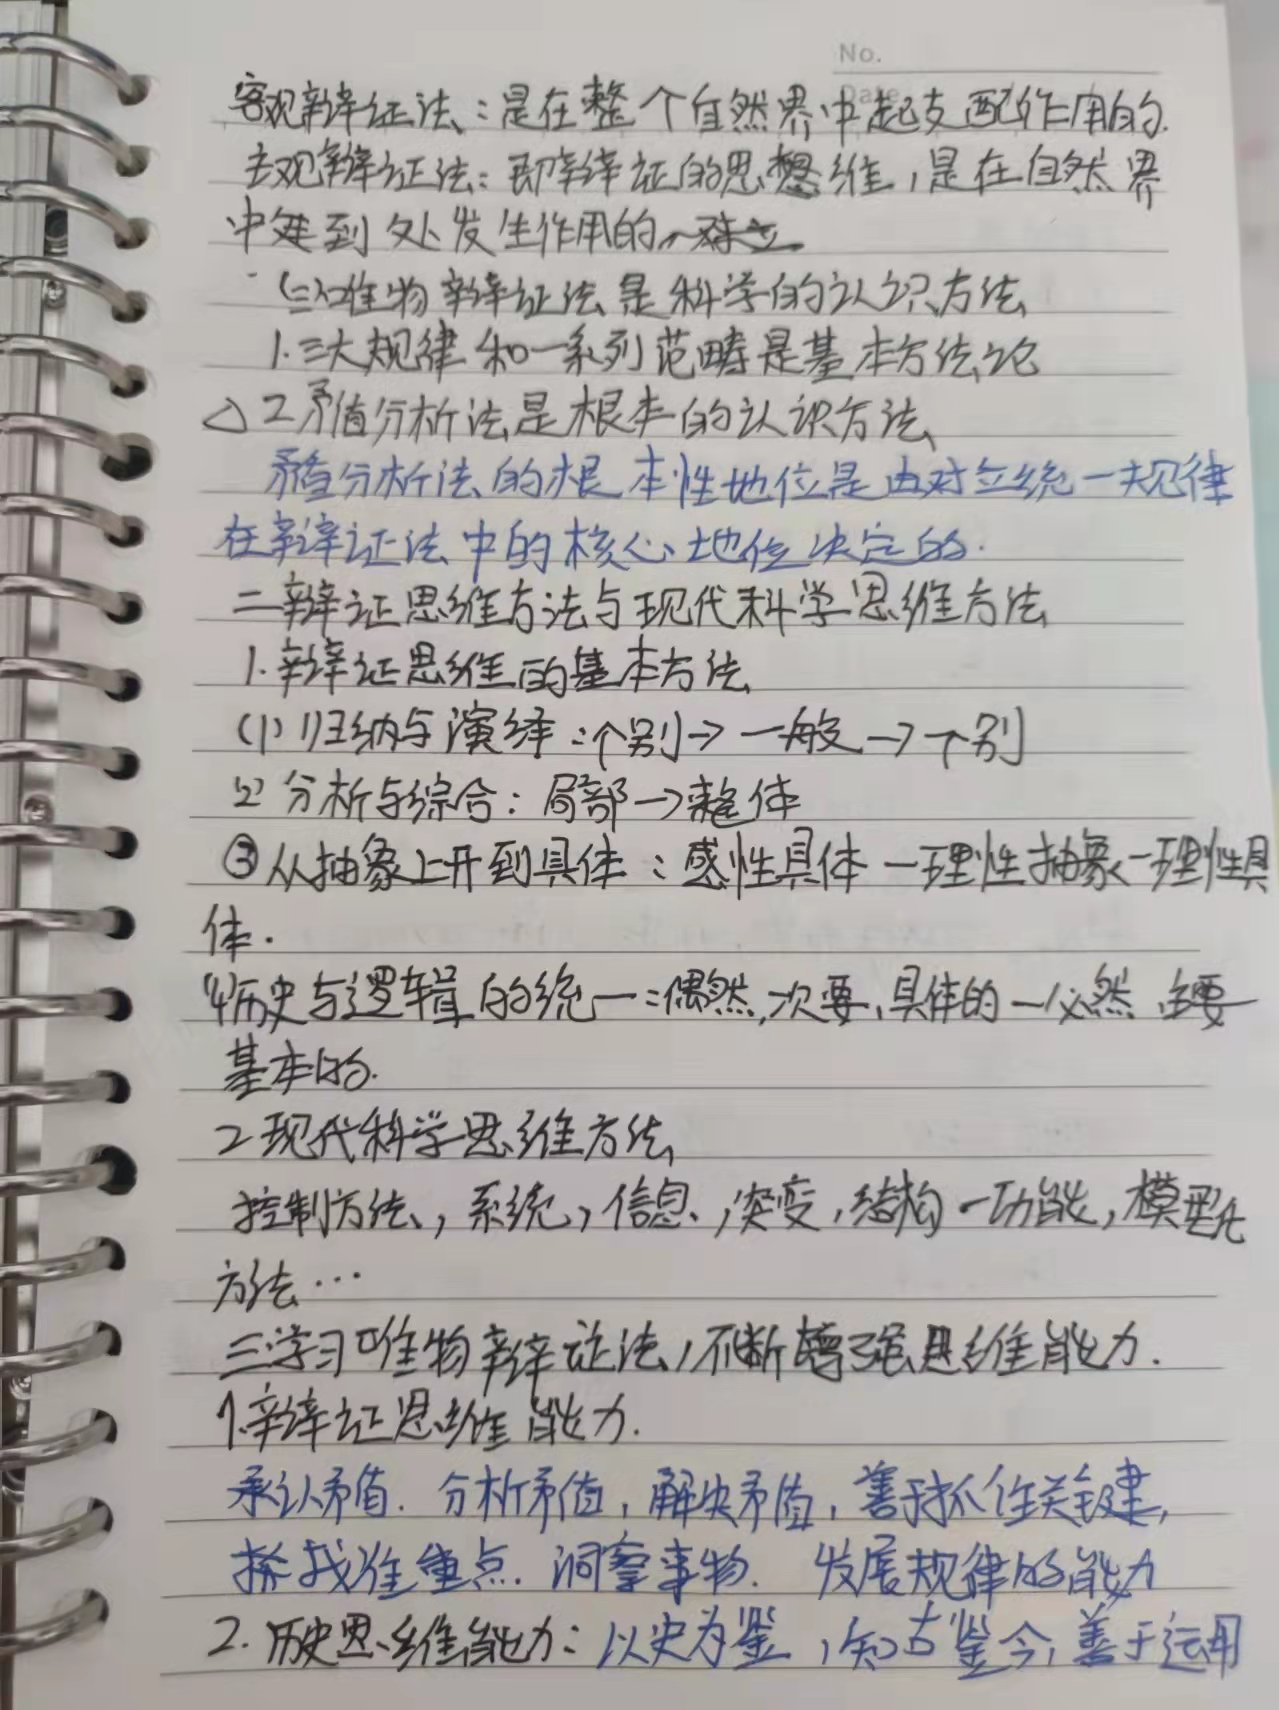 No.
Date
客观辩证法：是在整个自然界中起支配作用的.
主观辩证法：即辩证的思想维，是在自然界
中 到处发生作用的
(三)唯物辩证法是科学的认识方法
1.三大规律和一系列范畴是基本方法论
△2矛值分析法是根本的认识方法
矛值分析法的根本性地位是由对立统一规律
在辩证法中的核心地位决定的.
二辩证思维方法与现代科学思维方法
1.辩证思维的基本方法
(1)归纳与演绎：个别→一般→个别
(2)分析与综合：局部→整体
③从抽象上升到具体：感性具体—理性抽象—理性具
体.
(4)历史与逻辑的统一：偶然,次要,具体的—必然
基本的.
2现代科学思维方法
控制方法，系统，信息，突变，结构—功能，模型化
方法…
三学习唯物辩证法，不断增强思维能力.
1.辩证思维能力.
承认矛值.分析矛值，解决矛值，善于抓住关键，
找准重点.洞察事物.发展规律的能力
2.历史思维能力：以史为鉴，知古鉴今，善于运用